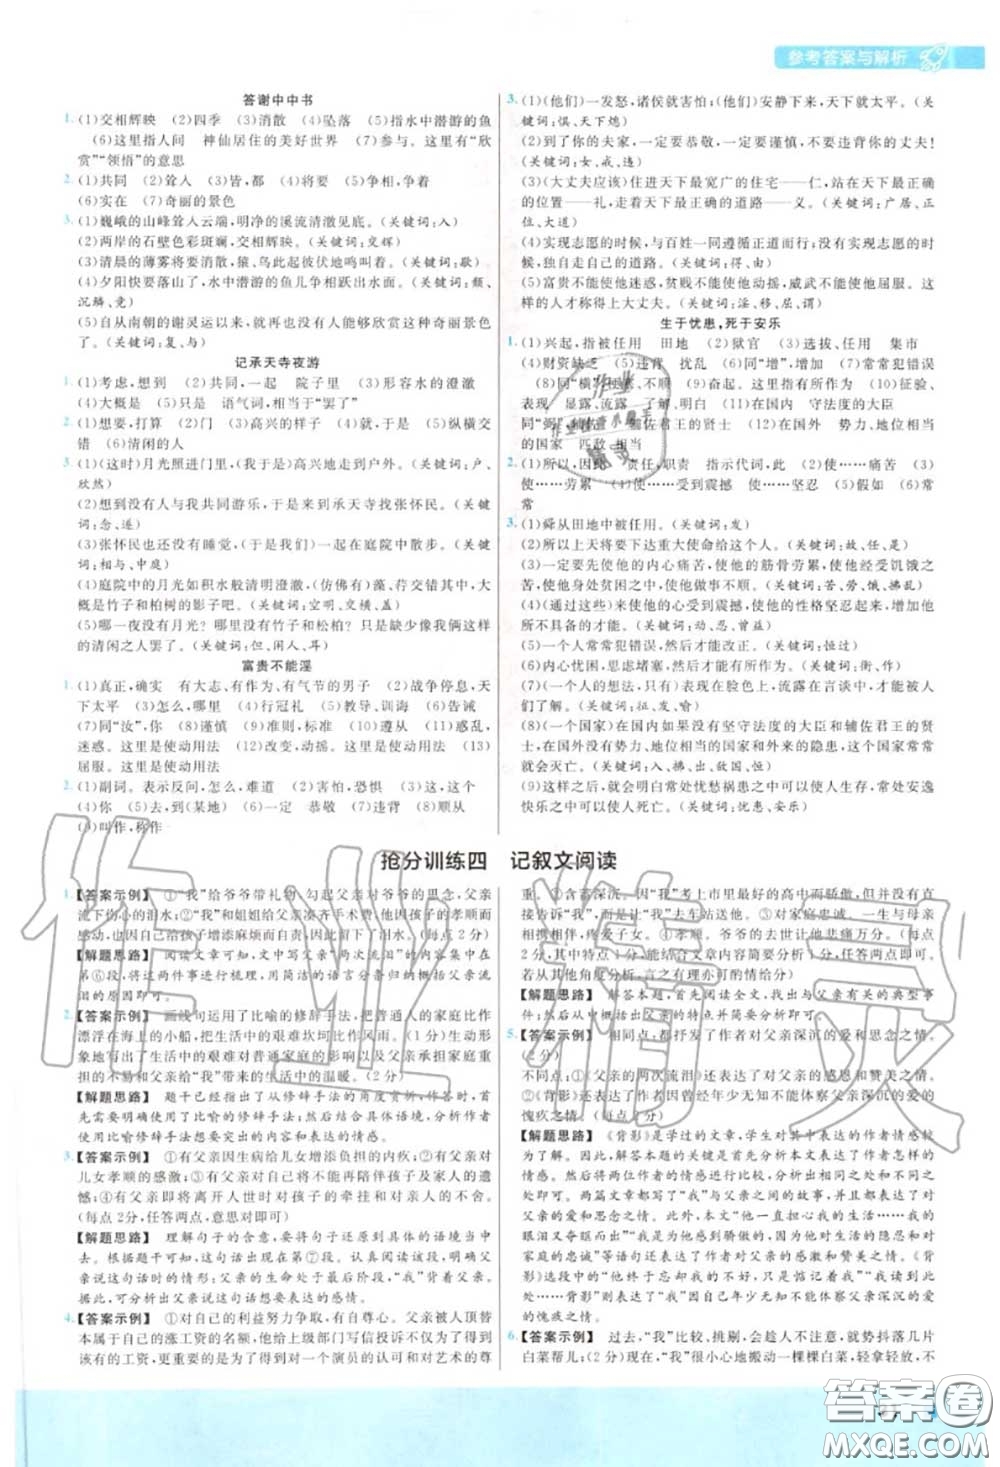 参考答案与解析
答谢中书书
1. (1)交相辉映 (2)四季 (3)消散 (4)坠落 (5)指水中潜游的鱼
(6)这里指人间 神仙居住的美好世界 (7)参与。这里有“欣
赏”“领悟”的意思
2. (1)共同 (2)耸人 (3)皆,都 (4)将要 (5)争相,争着
(6)实在 (7)奇丽的景色
3. (1)巍峨的山峰耸入云端,明净的溪流清澈见底。(关键词:入)
(2)两岸的石壁色彩斑斓,交相辉映。(关键词:交辉)
(3)清晨的薄雾将要消散,猿、鸟此起彼伏地鸣叫着。(关键词:歇)
(4)夕阳快要落山了,水中潜游的鱼儿争相跃出水面。(关键词:颓、
沉鳞、竞)
(5)自从南朝的谢灵运以来,就没有人能够欣赏这种奇丽景色
了。(关键词:复、与)
记承天寺夜游
1. (1)考虑,想到 (2)共同,一起 院子里 (3)形容水的澄澈
(4)大概是 (5)只是 语气词,相当于“罢了”
2. (1)想要,打算 (2)门 (3)高兴的样子 (4)就 (5)纵横交
错 (6)清闲的人
3. (1)(这时)月光照进门里,(我于是)高兴地走到户外。(关键词:户、
欣然)
(2)想到没有人与我共同游乐,于是前往承天寺找张怀民。(关键
词:念、遂)
(3)张怀民也没有睡觉,(于是我们)一起在庭院中散步。(关键
词:相与、中庭)
(4)庭院中的月光如积水般清明澄澈,(仿佛有)藻、荇交错其中,大
概是竹子和柏树的影子吧。(关键词:空明、交横、盖)
(5)哪一夜没有月光?哪里没有竹子和松柏?只是缺少像我俩这样
的清闲之人罢了。(关键词:但、闲人、耳)
富贵不能淫
1. (1)真正,确实 有大志、有作为、有气节的男子 (2)战争停息,天
下太平 (3)怎么,哪里 (4)行冠礼 (5)教导、训诲 (6)告诫
(7)同“汝”,你 (8)谨慎 (9)准则,标准 (10)遵从 (11)惑乱,
迷惑。这里是使动用法 (12)改变,动摇。这里是使动用法 (13)
屈服。这里是使动用法
2. (1)副词。表示反问,怎么,难道 (2)害怕,恐惧 (3)这,这个
(4)你 (5)去,到(某地) (6)一定 恭敬 (7)违背 (8)顺从
(9)叫作,称作
3. (1)(他们)一发怒,诸侯就害怕;(他们)安静下来,天下就太平。(关
键词:惧、天下熄)
(2)到了你的夫家,一定要恭敬,一定要谨慎,不要违背你的丈夫!
(关键词:女、戒、违)
(3)(大丈夫应该)住进天下最宽广的住宅——仁,站在天下最正
确的位置——礼,走着天下最正确的道路——义。(关键词:广居、正
位、大道)
(4)实现志愿的时候,与百姓一同遵循正道而行;没有实现志愿的时
候,独自走自己的道路。(关键词:得、由)
(5)富贵不能使他迷惑,贫贱不能使他动摇,威武不能使他屈服。这
样的人才称得上大丈夫。(关键词:淫、移、屈、谓)
生于忧患,死于安乐
1. (1)兴起,指被任用 田地 (2)狱官 (3)选拔、任用 集市
(4)财资缺乏 (5)违背 扰乱 (6)同“增”,增加 (7)常常犯错误
(8)同“横”,梗塞、不顺 (9)奋起。这里指有所作为 (10)征验、
表现 显露、流露 了解、明白 (11)在国内 守法度的大臣
同“弼”,辅佐 辅佐君王的贤士 (12)在国外 势力、地位相当
的国家 匹敌、相当
2. (1)所以,因此 责任,职责 指示代词,此 (2)使……痛苦 (3)
使……劳累 (4)使……受到震撼 使……坚忍 (5)所以 (6)常
常
3. (1)舜从田地中被任用。(关键词:发)
(2)所以上天将要下达重大使命给这个人。(关键词:故、任、是)
(3)一定要先使他的内心痛苦,使他的筋骨劳累,使他经受饥饿,
使他身处贫困之中,使他做事不顺。(关键词:苦、劳、饿、拂乱)
(4)(通过这些)来使他的心受到震撼,使他的性格坚忍起来,增加他
所不具备的才能。(关键词:动、忍、曾益)
(5)一个人常常犯错误,然后才能改正。(关键词:恒过)
(6)内心忧困,思虑堵塞,然后才能有所作为。(关键词:衡、作)
(7)(一个人的想法,只有)表现在脸色上,流露在言谈中,才能被人
们了解。(关键词:征、发、喻)
(8)(一个国家)在国内如果没有坚守法度的大臣和辅佐君王的贤
士,在国外没有势力、地位相当的国家和外来的隐患,这个国家常常
就会灭亡。(关键词:入、拂、出、敌国、恒)
(9)这之后,就会明白常处忧愁祸患之中可以使人生存,常处安逸
快乐之中可以使人死亡。(关键词:忧患、安乐)
抢分训练四 记叙文阅读
1. 【答案示例】 ①“我”给爷爷带礼物,勾起父亲对爷爷的思念,父亲
流下伤心的泪水;②“我”和姐姐给父亲凑齐手术费,他因孩子的孝顺而
感动,也因自己给孩子增添麻烦而自责,因此留下了泪水。(每点2分)
【解题思路】 阅读文章可知,文中写父亲“两次流泪”的内容集中在
第⑥段,将内容进行梳理,用简洁的语言分条归纳概括父亲流泪
的原因即可。
2. 【答案示例】 画线句运用了比喻的修辞手法,把普通人的家庭比作
漂浮在海上的小船,把生活中的艰难坎坷比作风雨。(1分)生动形
象地写出了生活中的艰难对普通家庭的影响以及父亲扛起家庭重
担的不易和父亲给“我”的生活带来的温暖。(2分)
【解题思路】 题干已经指出了从修辞手法的角度赏析,作答时,首
先需要明确使用了比喻的修辞手法;然后结合具体语境,分析作者使
用比喻修辞手法所要突出的内容和表达的情感。
3. 【答案示例】 ①有父亲因生病给儿女增添负担的内疚;②有父亲对
儿女孝顺的感激;③有父亲对自己将不能再陪伴孩子及家人的遗
憾;④有父亲即将离开人世时对孩子的牵挂和对家人的不舍。
(每点2分,任答两点,意思对即可)
【解题思路】 理解句子的含意,要将句子还原到具体的语境当中
去。根据题干可知,这句话出现在第⑦段。认真阅读该段,明确
这句话时的情形:父亲的生命处于最后阶段,“我”背着父亲。父
亲说这句话意在表达的感情。
4. 【答案示例】 ①对自己的利益努力争取,有自尊心。父亲被人顶替
本属于自己的涨工资的名额,他给上级部门写信投诉不仅为了得到
该有的工资,更重要的是为了得到对一个演员的认可和对艺术的尊
重。②含蓄深沉。因“我”考上市里最好的高中而骄傲,却没有直
接告诉“我”,而是要求“我”去车站送他。③对家庭忠诚。一生与母亲
相携相伴,疼爱子女。④孝顺。爷爷的去世让他悲痛万分。(每点
2分,其中特点1分,结合内容分析1分,任答两点即可。
若从其他角度分析,言之有理亦可酌情给分)
【解题思路】 解答本题,首先阅读全文,找出与父亲有关的典型事
件,然后从中概括出父亲的形象特点即可。
5. 【答案示例】 相同点:都抒发了作者对父亲深沉的爱和思念之情。
(2分)
不同点:①《父亲的两次流泪》还表达了对父亲的感恩和赞美之情。
②《背影》还表达了作者因曾经年少无知不能体察父亲深沉的爱的
愧疚之情。(每点1分)
【解题思路】 《背影》是学过的文章,学生对其中所表达的作者情感较
为了解。因此,解答本题的关键是要抓住本文所表达的作者的情
感,再将二者进行比较,分析出情感的相同之处和不同之
处。两篇文章都写了“我”与父亲之间的故事,并且表达了对
父亲的爱和思念之情。此外,本文“他一直担心我的生活……我的
眼泪又夺眶而出”“他知道我当时感到骄傲的,但……他对
家庭的忠诚”等语句还表达了作者对父亲的感激和赞美之情。《背
影》则还表达了“我”因自己年少无知不能体察父亲深沉的爱
的愧疚之情。
6. 【答案示例】 过去,“我”比较、挑剔,会趁人不注意,就势抖落几片
白菜帮儿;(2分)而现在,“我”很小心地搬动一棵棵白菜,轻拿轻放,不
作业精灵
答案圈
MXQE.COM